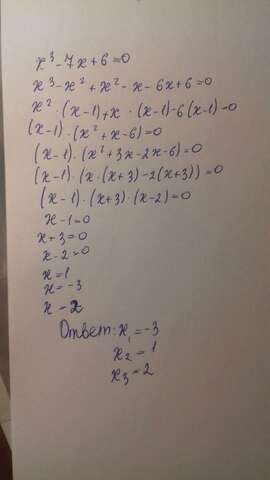 x³-7x+6=0
x³-x²+x²-x-6x+6=0
x²·(x-1)+x·(x-1)-6(x-1)=0
(x-1)·(x²+x-6)=0
(x-1)·(x²+3x-2x-6)=0
(x-1)·(x·(x+3)-2(x+3))=0
(x-1)·(x+3)·(x-2)=0
x-1=0
x+3=0
x-2=0
x=1
x=-3
x=2
Ответ: x₁=-3
x₂=1
x₃=2